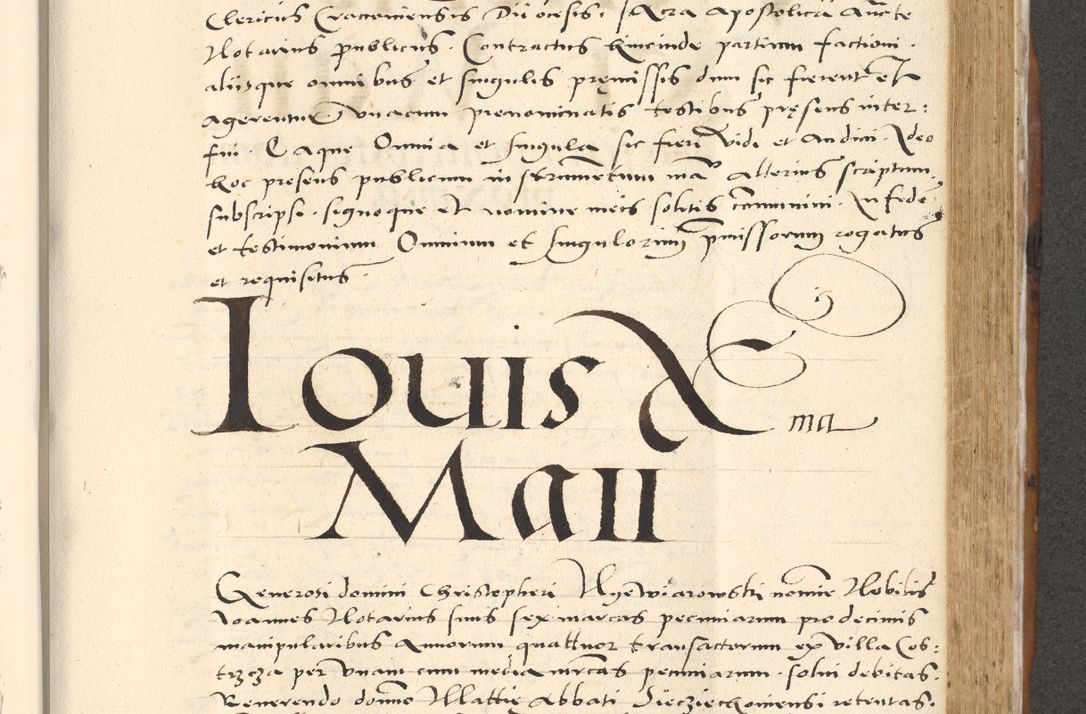 Clericus Cracoviensis Diiocesis. Sacra Apostolica Aucte
Notarius publicus. Contractus huicinde partium factioni.
aliisque omnibus et singulis premissis dum sic fierent Et
agerentur. Vnacum prenominatis testibus presens inter:
fui Eaque Omnia et singula sic fieri vidi et Audivi Ideo
hoc presens publicum instrumentum manu alterius scriptum.
subscripsi. signoque et nomine meis solitis communivi. In fidem
et testimonium Omnium et singulorum pmissorum rogatus
et requisitus
Iouis X ma
Maii
Generosi domini Christopheri Nyewiarowski nomine Nobilis
Joannes Notarius suus sex marcas pecuniarum pro decimis
manipularibus Annorum quattuor transactorum ex villa Cos:
trzcza per vnam cum media marcas pecuniarum. solui debitas.
Reverendo domno Mattie Abbati Sieciechoviensi retentas.